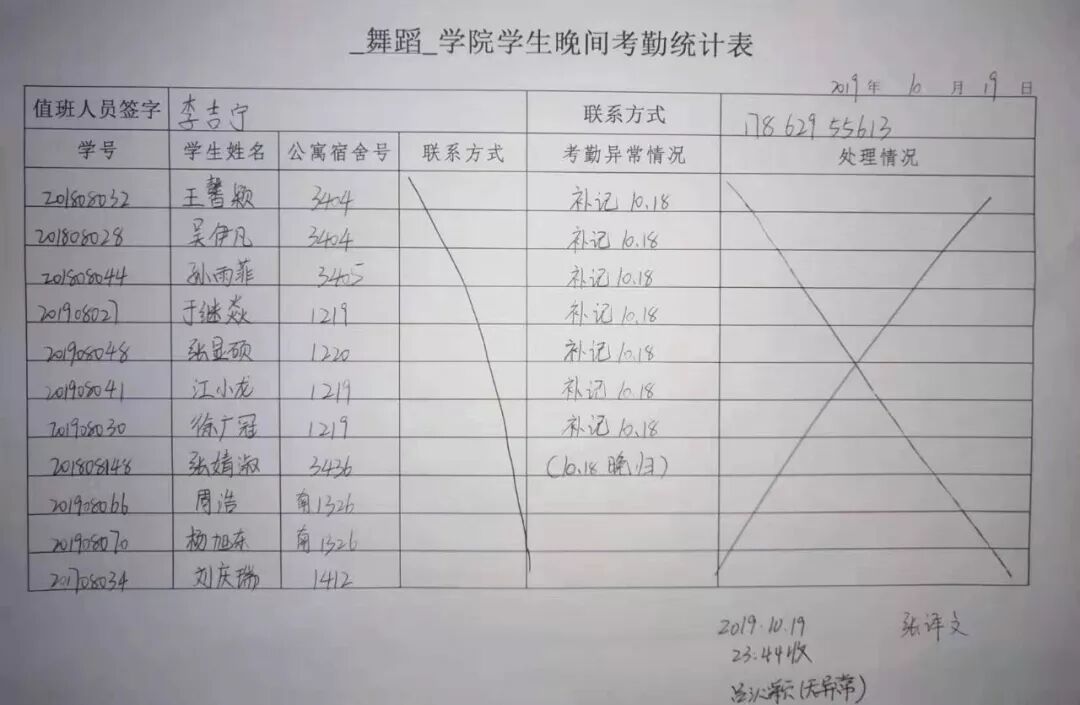 _舞蹈_学院学生晚间考勤统计表
2019年 10月 19日
值班人员签字 李吉宁 联系方式 178 629 55613
学号 学生姓名 公寓宿舍号 联系方式 考勤异常情况 处理情况
201808032 王馨颖 3404 补记 10.18
201808028 吴伊凡 3404 补记 10.18
201808044 孙雨菲 3405 补记 10.18
201908027 于继焱 1219 补记 10.18
201908048 张显硕 1220 补记 10.18
201908041 江小龙 1219 补记 10.18
201908030 徐广冠 1219 补记 10.18
201808148 张婧淑 3436 (10.18 晚归)
201908066 周浩 南1326
201908070 杨旭东 南1326
201708034 刘庆瑞 1412
2019.10.19 张译文
23:44收
吕沁颖(无异常)